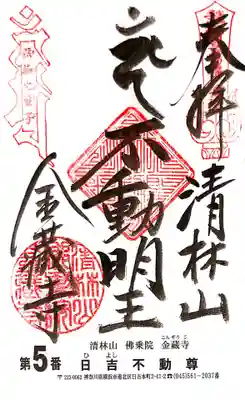 奉拝
清林山
不動明王
金蔵寺
清林山 佛乗院 金蔵寺
こんぞうじ
第5番 日吉不動尊
ひよし
〒223-0062 神奈川県横浜市港北区日吉本町2-41-2☎(045)561-2037番